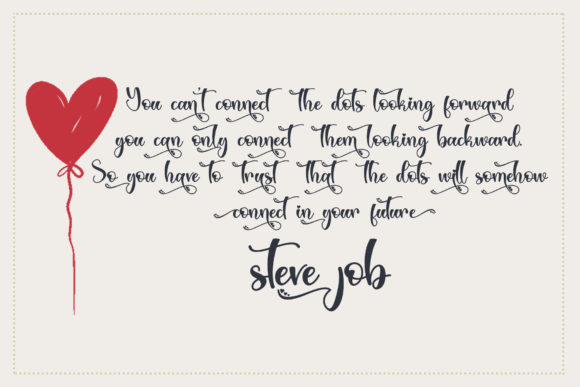 You can't connect the dots looking forward
you can only connect them looking backward.
So you have to trust that the dots will somehow
connect in your future
steve job